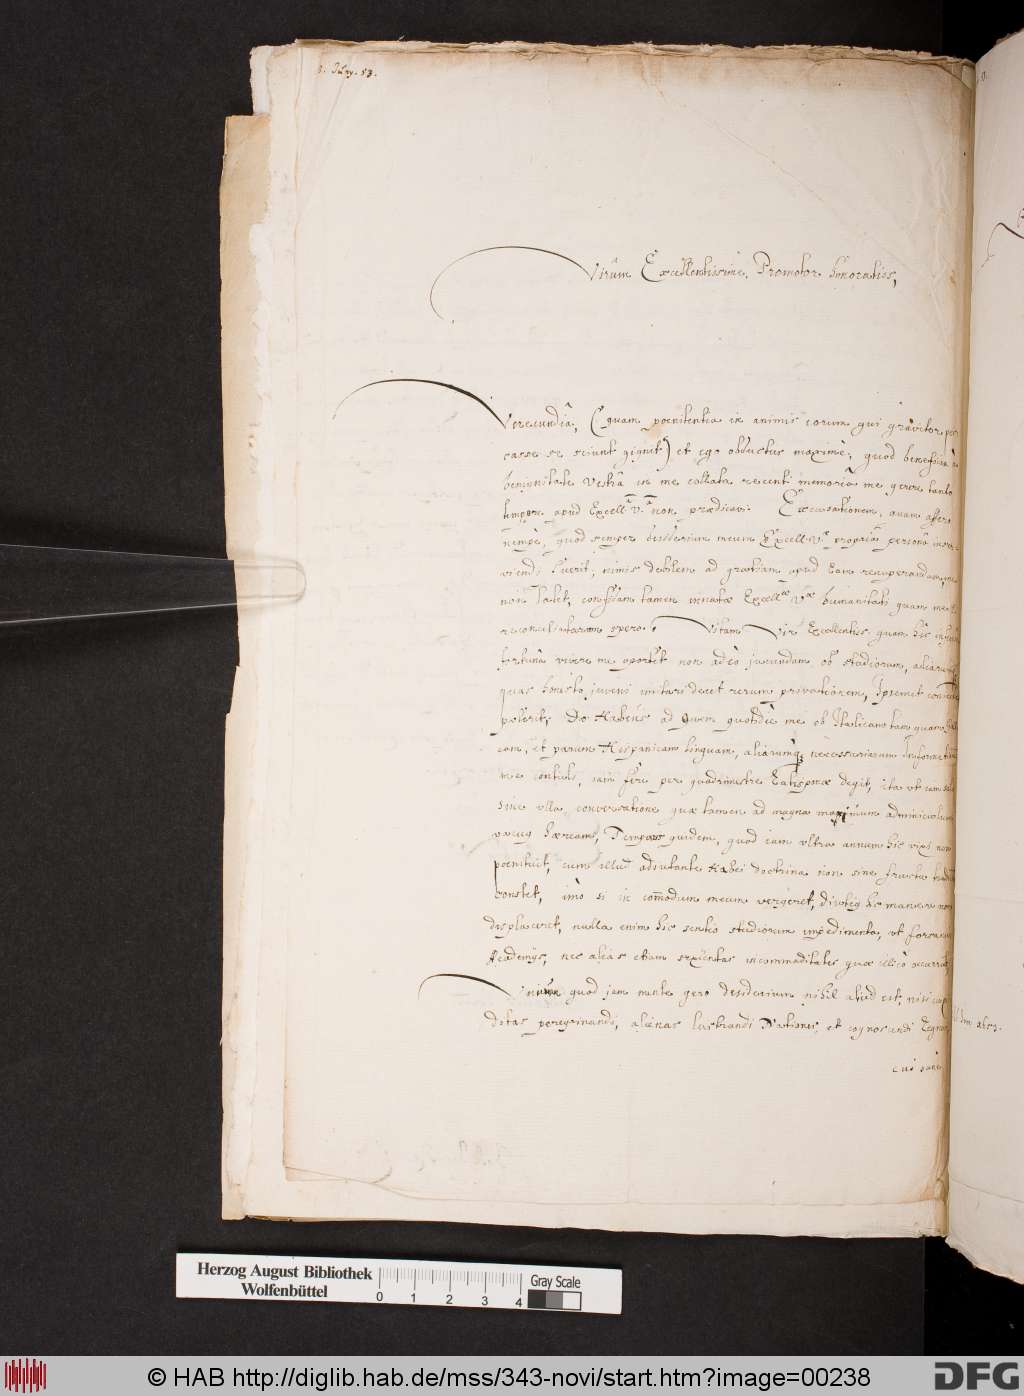 8. Juny. 53.
Virûm Excellentissime, Promotor honoratiss,
Verecundiâ, (quam poenitentia in animis eorum qui graviter pec
casse se sciunt gignit) et ego obductus maximè, quod beneficia à
benignitate Vestrâ in me collata recenti memoriâ me gerere tanto
tempore apud Excell. V. non praedicavi. Excusationem, quam affero
nempè, quod semper desiderium meum Excell. V. propriâ personâ inser
viendi fuerit, nimis debilem ad gratiam apud Eam recuperandam, me
non latet, confisum tamen innatae Excell. V. humanitati quam me
reconciliaturam spero. Vitam Vir Excellentiss. quam hîc
fortunâ vivere me oportet non adeò jucundam ob studiorum, aliarumq
quas honesto juveni imitari decet rerum privationem, Ipsemet
poterit, Do Habeus ad quem quotidiè me ob Italicam tam quam
cam, et parum Hispanicam linguam, aliarumq necessariarum Information
me contuli, iam ferè per quadrimestre Ratisponae degit, ita ut iam
sine ulla conversatione quae tamen ad magna maximum adminiculum
haeream, Temporis quidem, quod iam ultra annum hîc vixi non
poenituit, cum illud adiutante Habei doctrina non sine fructu
constet, imò si in com̄odum meum vergeret, diutiq hîc manere non
displiceret, nulla enim hîc sentio studiorum impedimenta, ut forsan in
Academijs, nec alias etiam sexcentas incommoditates quae illicò occurrunt
quod jam mente gero desiderium nihil aliud est, nisi cupi
ditas peregrinandi, alienas lustrandi Nationes, et cognoscendi Regna
cui sanè
Herzog August Bibliothek
Wolfenbüttel
0 1 2 3 4
Gray Scale
© HAB http://diglib.hab.de/mss/343-novi/start.htm?image=00238
DFG